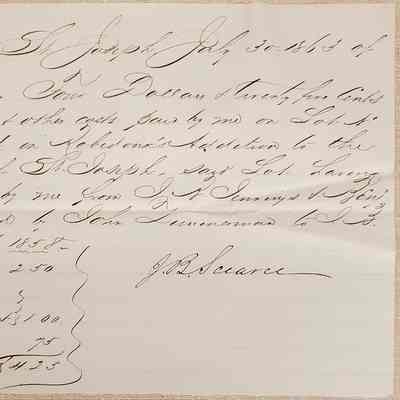 St Joseph July 30 1863 of
Four Dollars & Twenty five Cents
& other costs paid by me on Lot No
in Robidoux's Addition to the
of St Joseph, said Lot having
by me from I. N. Jennings & Benj
by John to J. B.
1858
2.50
J. B. Searce
1.00
75
$4.25